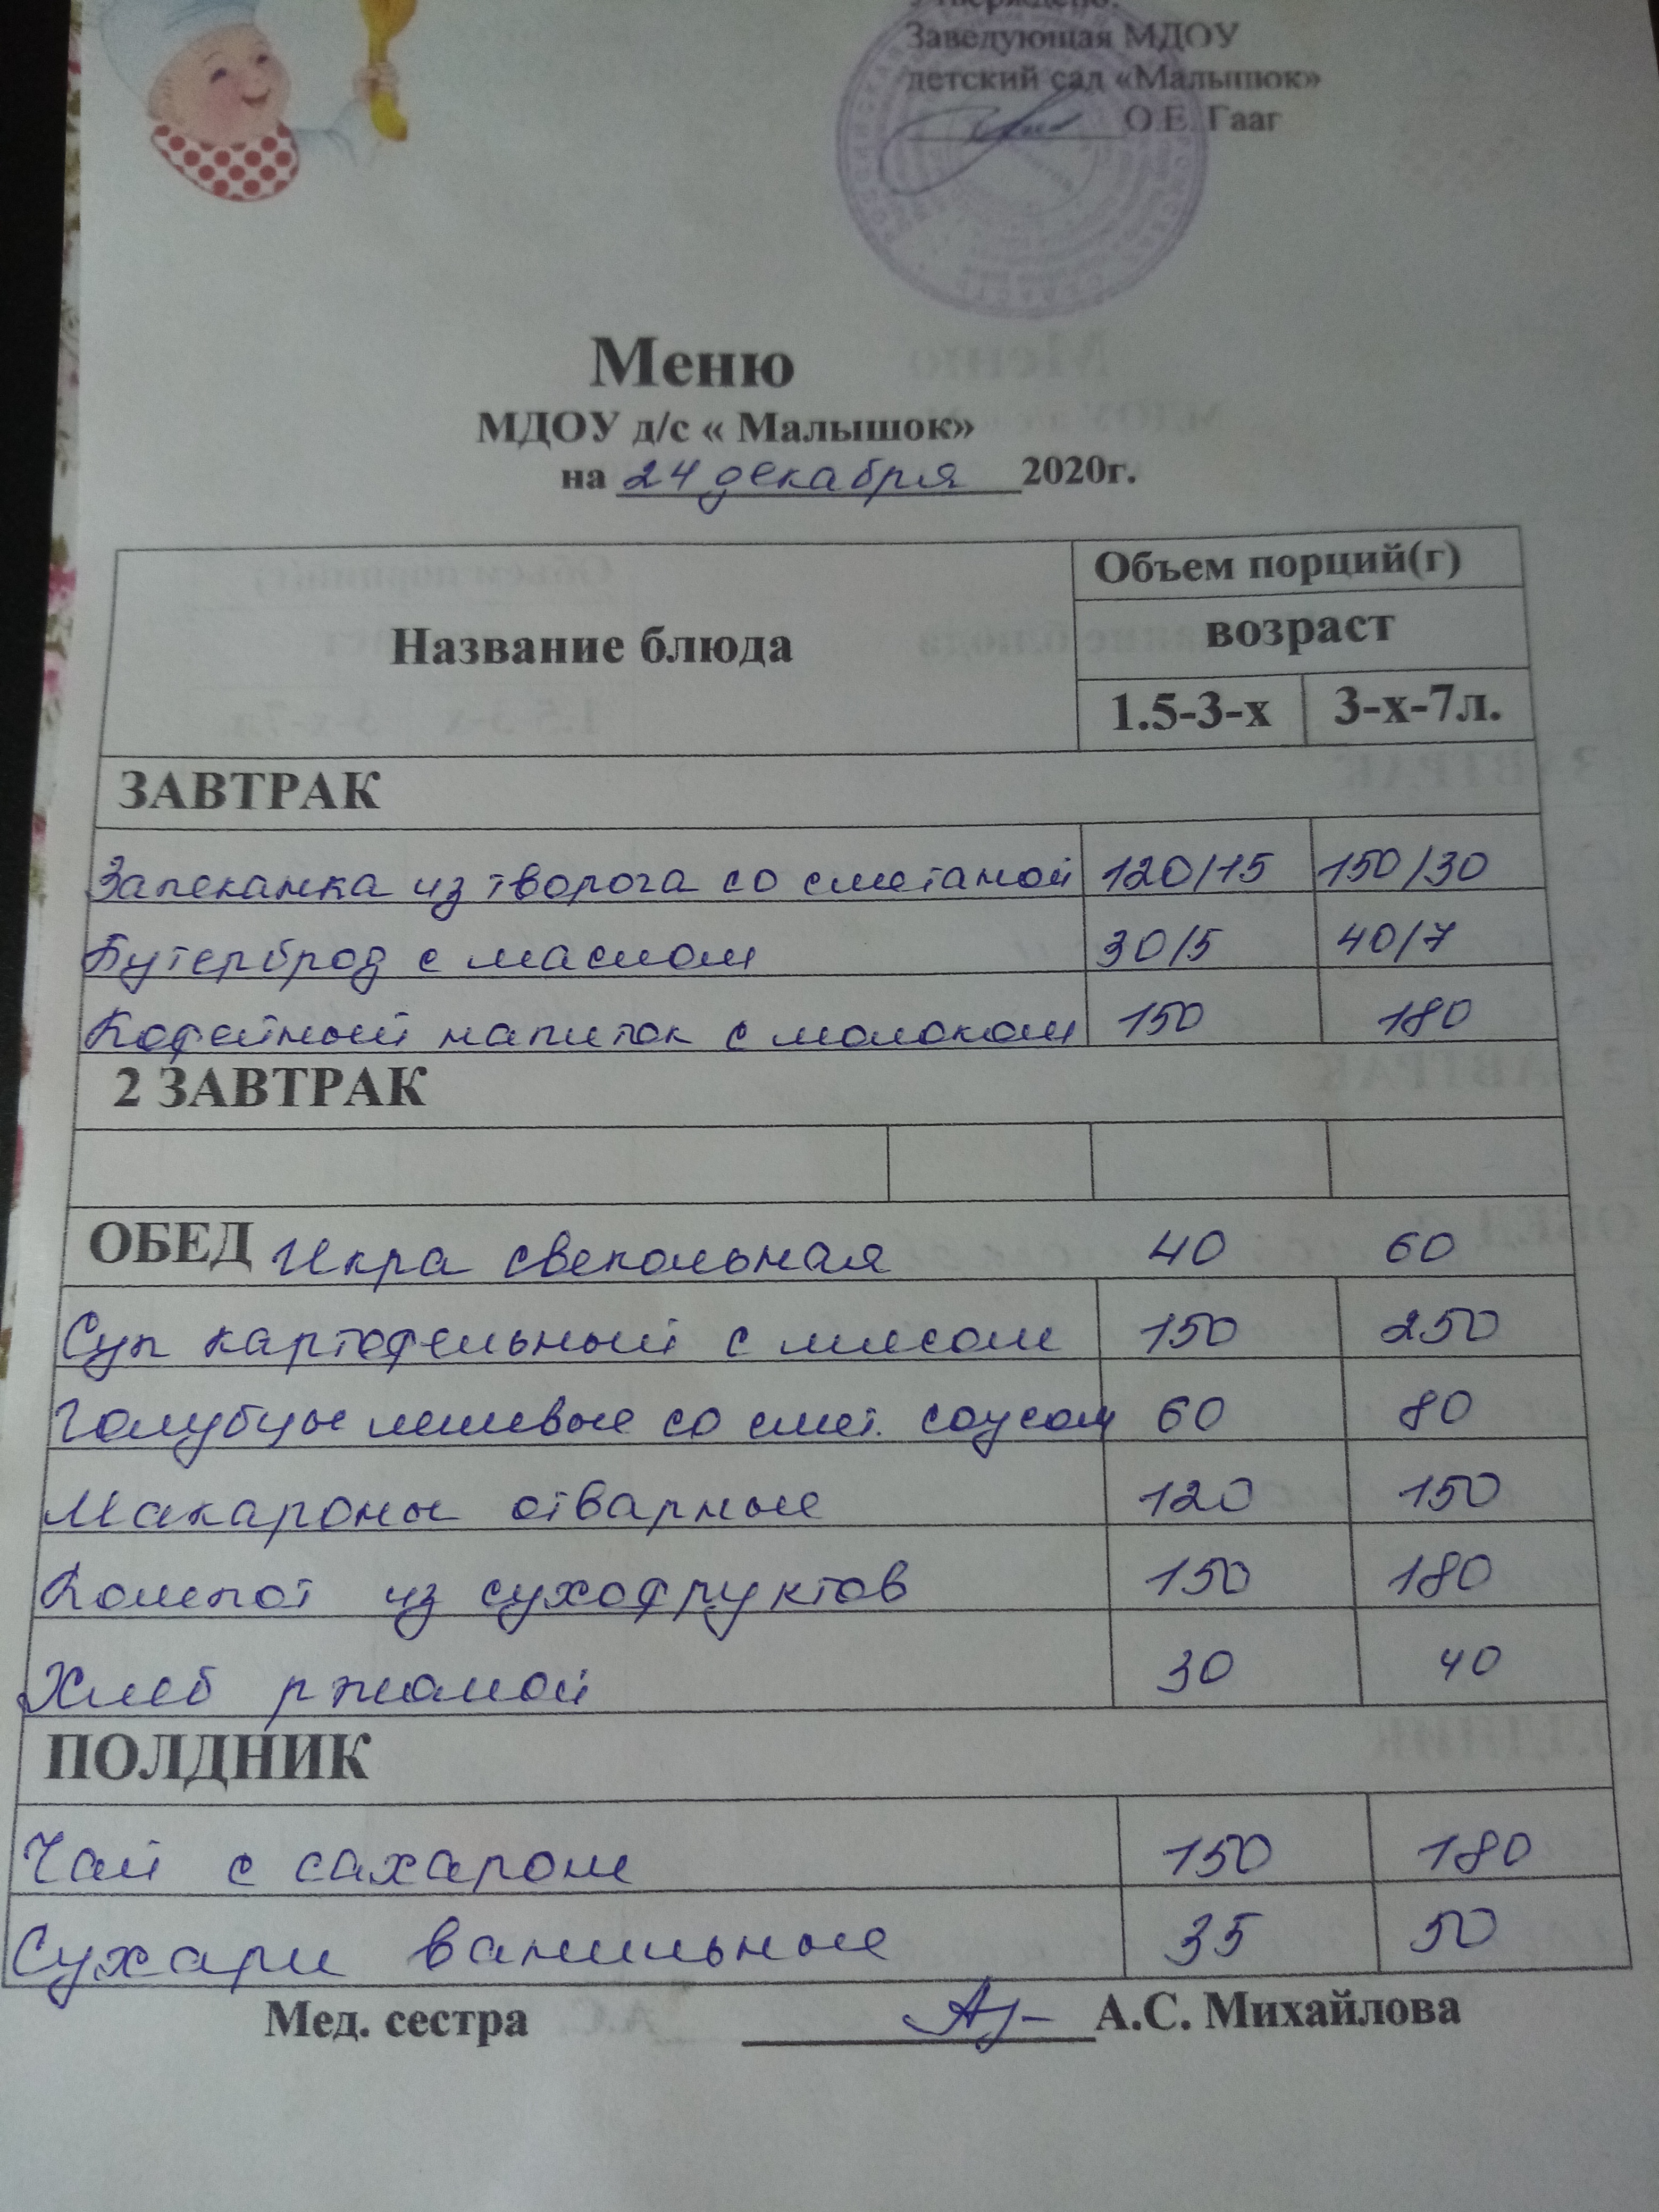 Утверждено:
Заведующая МДОУ
детский сад «Малышок»
О.Е. Гааг
Меню
МДОУ д/с « Малышок»
на 24 декабря 2020г.
Название блюда
Объем порций(г)
возраст
1.5-3-х 3-х-7л.
ЗАВТРАК
Запеканка из творога со сметаной 120/15 150/30
Бутерброд с маслом 30/5 40/7
Кофейный напиток с молоком 150 180
2 ЗАВТРАК
ОБЕД Икра свекольная 40 60
Суп картофельный с мясом 150 250
Голубцы ленивые со смет. соусом 60 80
Макароны отварные 120 150
Компот из сухофруктов 150 180
Хлеб ржаной 30 40
ПОЛДНИК
Чай с сахаром 150 180
Сухари ванильные 35 50
Мед. сестра А.С. Михайлова